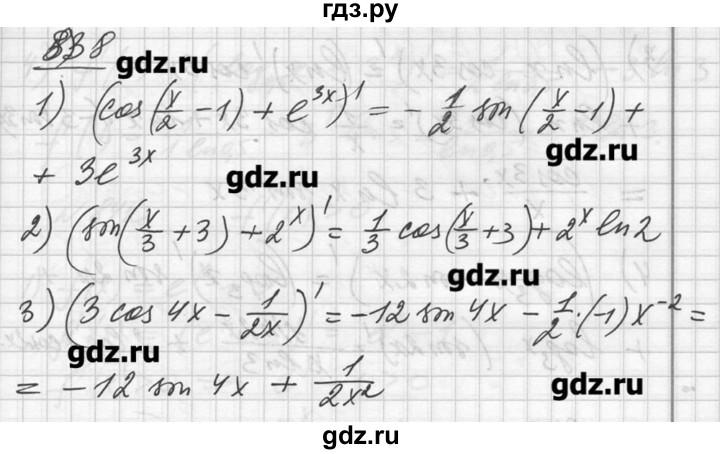 гдз.ру
838
gdz.ru
1) (cos(x/2 - 1) + e^3x)' = - 1/2 sin(x/2 - 1) +
gdz.ru
+ 3e^3x
gdz.ru
2) (sin(x/3 + 3) + 2^x)' = 1/3 cos(x/3 + 3) + 2^x ln2
gdz.ru
3) (3 cos 4x - 1/2x)' = -12 sin 4x - 1/2 · (-1)x^-2 =
gdz.ru
= -12 sin 4x + 1/2x^2
gdz.ru
gdz.ru